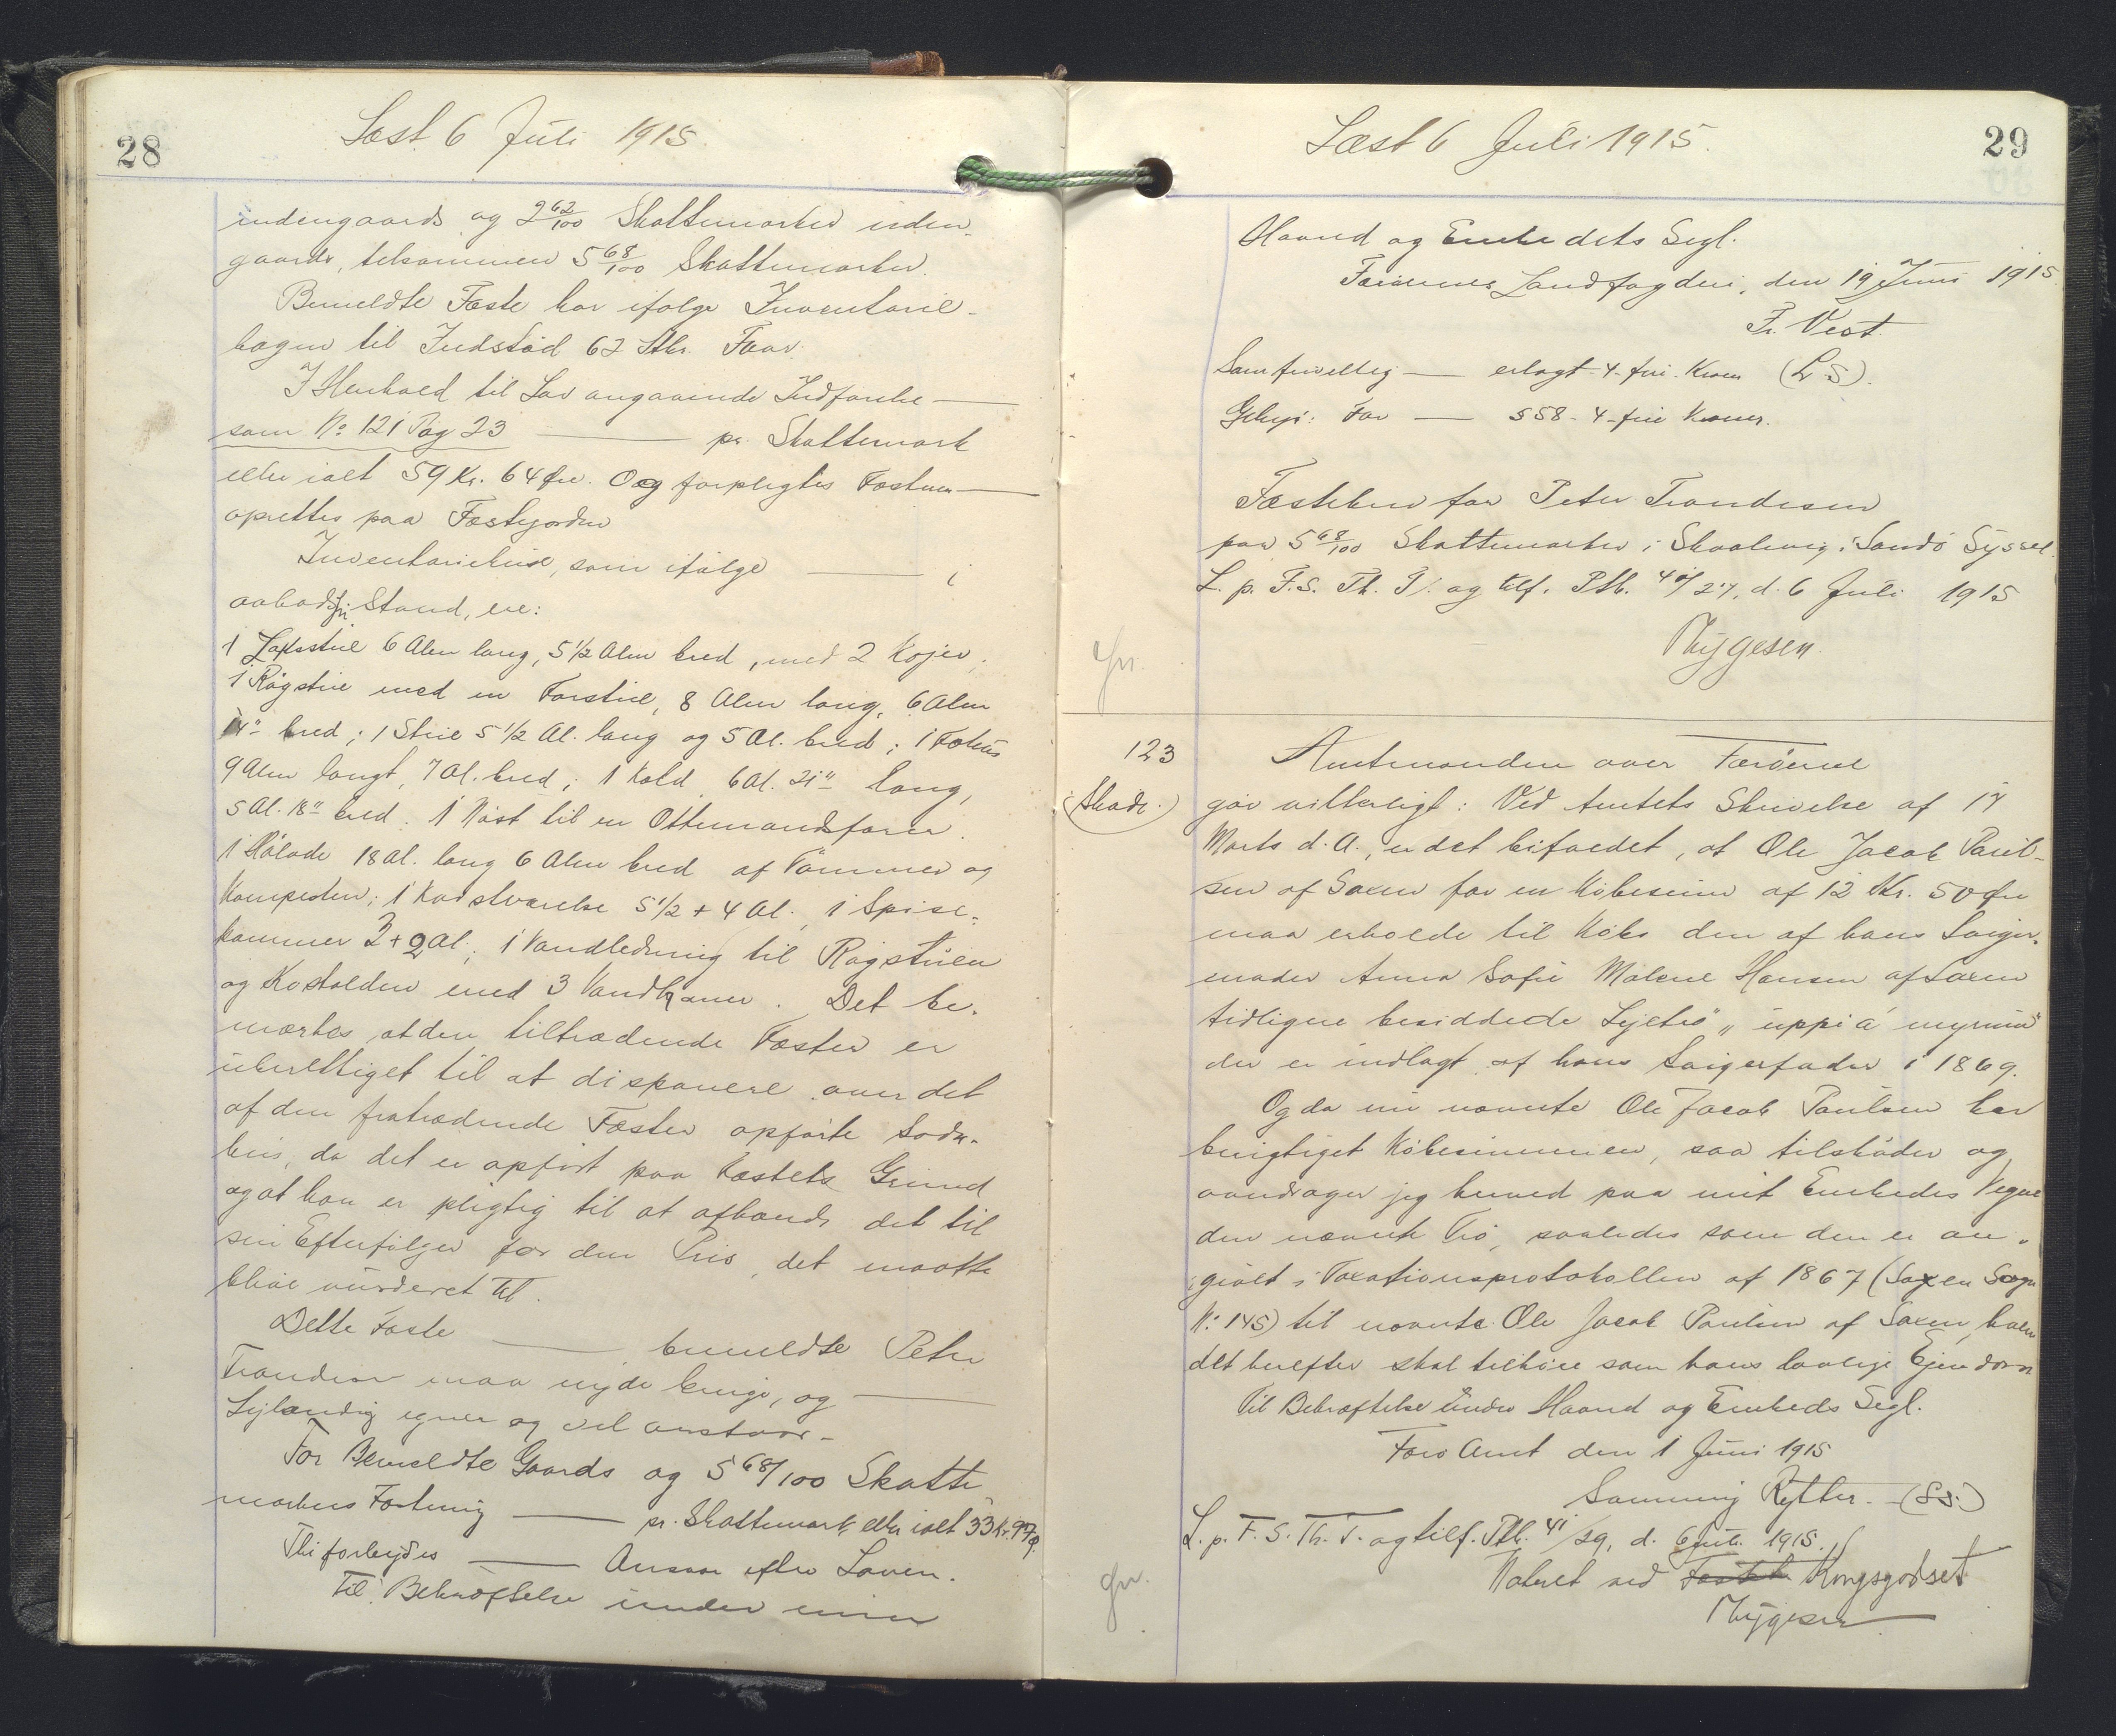 28
Læst 6 Juli 1915.
indengaards og 2 62/100 Skattemarker uden-
gaards, tilsammen 5 68/100 Skattemarker.
Bemeldte Fæste har ifølge Inventarie-
bogen til Indstød 62 Stkr. Faar.
I Henhold til Lov angaaende Indførelse —
som No 121 Pag 23 — pr. Skattemark
eller ialt 59 Kr. 64 Øre. Og forpligtes Fæsteren —
oprettes paa Fæstejorden
Inventariehuse, som ifølge — i
aabodsfri Stand, ere:
1 6 Alen lang, 5 1/2 Alen bred, med 2 Køjer,
1 Røgstue med en Forstue, 8 Alen lang, 6 Alen
bred; 1 Stue 5 1/2 Al. lang og 5 Al. bred; 1 Fæhus
9 Alen langt, 7 Al. bred; 1 Hold 6 Al. 21" lang,
5 Al. 18" bred. 1 Nøst til en Ottemandsfarer.
1 Hølade 18 Al. lang 6 Alen bred af Tømmer og
Kampesten; 1 5 1/2 + 4 Al., 1 Spise-
kammer 3 + 2 Al.; 1 Vandledning til Røgstuen
og Kostalden med 3 Vandhaner. Det be-
mærkes, at den tiltrædende Fæster er
uberettiget til at disponere over det
af den fratrædende Fæster opførte
hus, da det er opført paa Fæstets Grund
og at han er pligtig til at afhænde det til
sin Efterfølger for den Pris, det maatte
blive vurderet til.
Dette Fæste — bemeldte Peter
Trondesen maa nyde bruge, og —
Lejlændig egner og vel anstaar-
For Bemeldte Gaards og 5 68/100 Skatte
markers Fæstning — pr. Skattemark eller ialt 33 Kr.
Thi forbydes — Ansvar efter Loven.
Til Bekræftelse under min
29
Læst 6 Juli 1915.
Haand og Embedets Segl.
Færøernes Landfogderi, den 19 Juni 1915
Fr. Vest.
— erlagt 4 - fire Kroner (L S).
Gebyr: For — § 58 - 4 - fire Kroner.
Fæstebrev for Peter Trondesen
paa 5 68/100 Skattemarker i Skaalevig, Sandø Syssel.
L. p. F. S. Th. T. og tilf. Ptb. 40/27, d. 6 Juli 1915
Mygesen.
gn.
123
(Skade.)
Amtmanden over Færøerne
gør vitterligt: Ved Amtets Skrivelse af 17
Marts d. A., er det bifaldet, at Ole Jacob Poul-
sen af Saxen for en Købesum af 12 Kr. 50 Øre
maa erholde til Købs den af hans Sviger-
moder Anna Sofie Malene Hansen af Saxen
tidligere besiddede Lejetrø „uppi á myrinni"
der er indlagt af hans Svigerfader i 1869.
Og da nu nævnte Ole Jacob Poulsen har
berigtiget Købesummen, saa tilskøder og
overdrager jeg herved paa mit Embedes Vegne
den nævnte Trø, saaledes som den er an-
givet i Taxationsprotokollen af 1867 (Saxen Sogn
No 145) til nævnte Ole Jacob Poulsen af Saxen, hvem
det herefter skal tilhøre som hans lovlige Ejendom
Til Bekræftelse under Haand og Embeds Segl.
Færø Amt den 1 Juni 1915
Rytter. (LS.)
L. p. F. S. Th. T. og tilf. Ptb. 41/29, d. 6 Juli 1915.
Noteret ved Kongsgodset
Mygesen
gn.